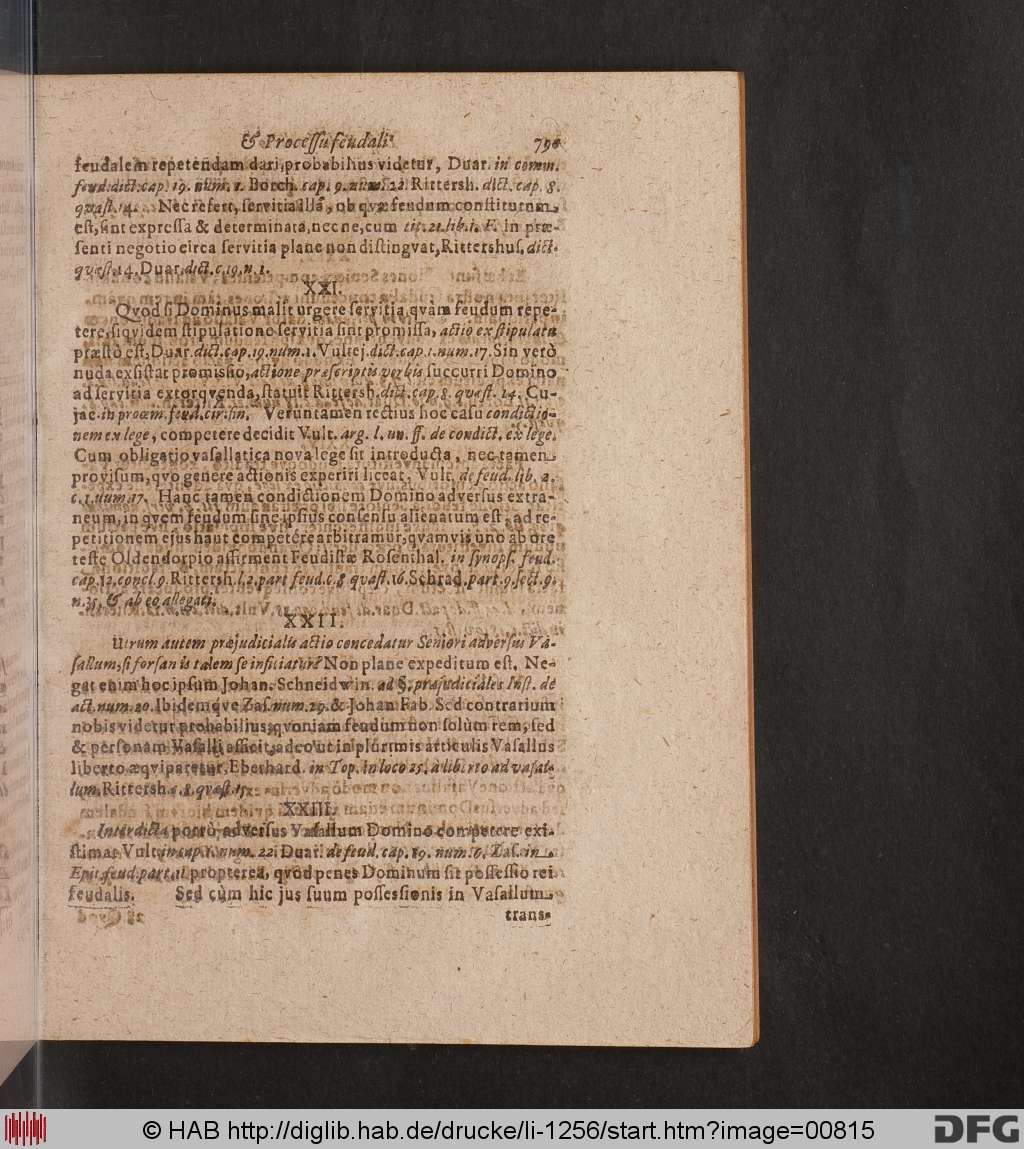 & Processu feudali.
feudalem repetendam dari, probabilius videtur, Duar. in comm.
feud. dict. cap. 19. num. 1. Borch. cap. 9. num. 22. Rittersh. dict. cap. 8.
quæst. 14. Nec refert, servitia illa, ob qvæ feudum constitutum
est, sint expressa & determinata, nec ne, cum tit. 21. lib. 1. F. in præ-
senti negotio circa servitia plane non distingvat, Rittershus. dict.
quæst. 14. Duar. dict. c. 19. n. 1.
XXI.
Qvod si Dominus malit urgere servitia, qvàm feudum repe-
tere, siqvidem stipulatione servitia sint promissa, actio ex stipulatu
præstò est, Duar. dict. cap. 19. num. 1. Vultej. dict. cap. 1. num. 17. Sin verò
nuda exsistat promissio, actione præscriptis verbis succurri Domino
ad servitia extorqvenda, statuit Rittersh. dict. cap. 8. quæst. 14. Cu-
jac. in proœm. feud. cir. fin. Veruntamen rectius hoc casu condictio-
nem ex lege, competere decidit Vult. arg. l. un. ff. de condict. ex lege.
Cum obligatio vasallatica nova lege sit introducta, nec tamen
provisum, qvo genere actionis experiri liceat, Vult. de feud. lib. 2.
c. 1. num. 17. Hanc tamen condictionem Domino adversus extra-
neum, in qvem feudum sine ipsius consensu alienatum est, ad re-
petitionem ejus haut competere arbitramur, qvamvis uno ab ore
teste Oldendorpio affirment Feudistæ Rosenthal. in synops. feud.
cap. 12. concl. 9. Rittersh. l. 2. part. feud. c. 8 quæst. 16. Schrad. part. 9. sect. 9.
n. 15. & ab eo allegati.
XXII.
Utrum autem præjudicialis actio concedatur Seniori adversus Va-
sallum, si forsan is talem se inficiatur? Non plane expeditum est. Ne-
gat enim hoc ipsum Johan. Schneidwin. ad §. præjudiciales Inst. de
act. num. 20. Ibidemqve Zas. num. 29. & Johan Fab. Sed contrarium
nobis videtur probabilius, qvoniam feudum non solùm rem, sed
& personam Vasalli afficit, adeo ut in plurimis articulis Vasallus
liberto æqviparetur, Eberhard. in Top. in loco 25. à liberto ad vasal-
lum, Rittersh. c. 8. quæst. 15.
XXIII.
Interdicta porrò adversus Vasallum Domino competere exi-
stimat Vult. in cap. 1. num. 22. Duar. de feud. cap. 19. num. 6. Zas. in
Epit. feud. part. 11. propterea, qvòd penes Dominum sit possessio rei
feudalis. Sed cùm hic jus suum possessionis in Vasallum
trans-
© HAB http://diglib.hab.de/drucke/li-1256/start.htm?image=00815
DFG